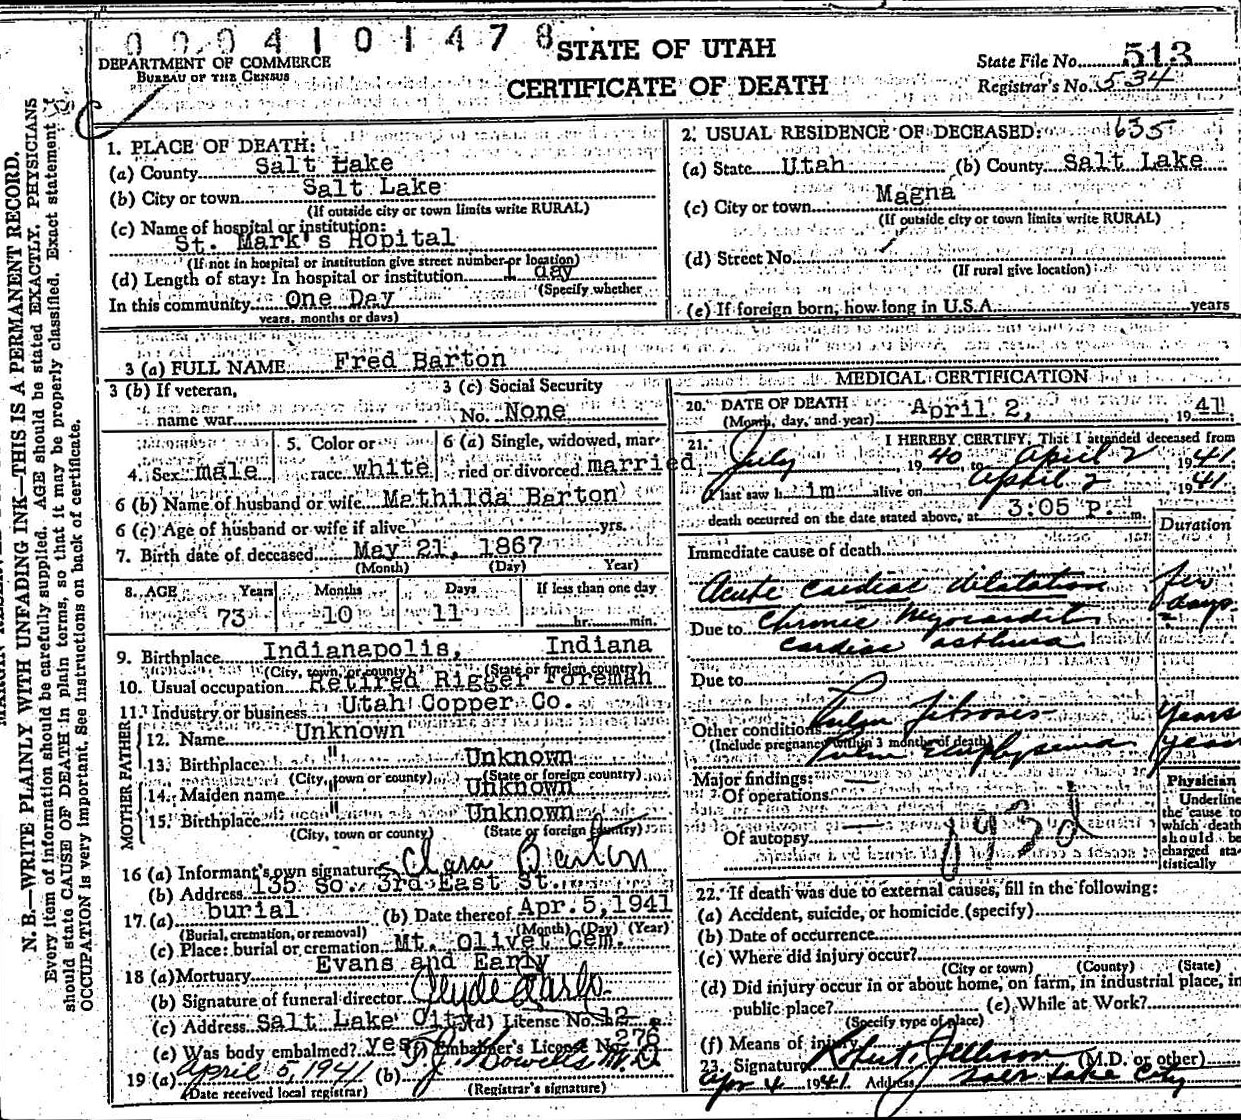 0004101478
STATE OF UTAH
CERTIFICATE OF DEATH
DEPARTMENT OF COMMERCE
BUREAU OF THE CENSUS
State File No. 513
Registrar's No. 534
N. B.—WRITE PLAINLY WITH UNFADING INK—THIS IS A PERMANENT RECORD.
Every item of information should be carefully supplied. AGE should be stated EXACTLY. PHYSICIANS
should state CAUSE OF DEATH in plain terms, so that it may be properly classified. Exact statement
OCCUPATION is very important. See instructions on back of certificate.
1. PLACE OF DEATH:
(a) County Salt Lake
(b) City or town Salt Lake
(If outside city or town limits write RURAL)
(c) Name of hospital or institution:
St. Mark's Hopital
(If not in hospital or institution give street number or location)
(d) Length of stay: In hospital or institution 1 day
(Specify whether
In this community One Day
years, months or days)
2. USUAL RESIDENCE OF DECEASED: 635
(a) State Utah (b) County Salt Lake
(c) City or town Magna
(If outside city or town limits write RURAL)
(d) Street No.
(If rural give location)
(e) If foreign born, how long in U.S.A. years
3 (a) FULL NAME Fred Barton
3 (b) If veteran,
name war
3 (c) Social Security
No. None
4. Sex male
5. Color or
race white
6 (a) Single, widowed, mar-
ried or divorced married
6 (b) Name of husband or wife Mathilda Barton
6 (c) Age of husband or wife if alive yrs.
7. Birth date of deceased May 21, 1867
(Month) (Day) Year)
8. AGE Years Months Days If less than one day
73 10 11 hr. min.
9. Birthplace Indianapolis, Indiana
(City, town, or county) (State or foreign country)
10. Usual occupation Retired Rigger Foreman
11. Industry or business Utah Copper Co.
FATHER
12. Name Unknown
13. Birthplace " Unknown
(City, town or county) (State or foreign country)
MOTHER
14. Maiden name " Unknown
15. Birthplace " Unknown
(City, town or county) (State or foreign country)
16 (a) Informant's own signature Clara Barton
(b) Address 135 So. 3rd East St.
17. (a) burial (b) Date thereof Apr. 5, 1941
(Burial, cremation, or removal) (Month) (Day) (Year)
(c) Place: burial or cremation Mt. Olivet Cem.
18 (a) Mortuary Evans and Early
(b) Signature of funeral director
(c) Address Salt Lake City (d) License No. 12
(e) Was body embalmed? yes (f) Embalmer's License No. 276
19 (a) April 5, 1941 (b) M.D
(Date received local registrar) (Registrar's signature)
MEDICAL CERTIFICATION
20. DATE OF DEATH April 2, 1941
(Month, day, and year)
21. I HEREBY CERTIFY, That I attended deceased from
July 1940 to April 2 1941
I last saw him alive on April 2 1941
death occurred on the date stated above, at 3:05 P. m.
Duration
Immediate cause of death
Acute cardiac dilatation few days
Due to Chronic Myocarditis
cardiac asthma
Due to
Other conditions Pulm fibrosis Years
(Include pregnancy within 3 months of death) Pulm Emphysema years
Major findings:
Of operations
Of autopsy
193d
Physician
Underline
the cause to
which death
should be
charged sta-
tistically
22. If death was due to external causes, fill in the following:
(a) Accident, suicide, or homicide (specify)
(b) Date of occurrence
(c) Where did injury occur?
(City or town) (County) (State)
(d) Did injury occur in or about home, on farm, in industrial place, in
public place? (e) While at Work?
(Specify type of place)
(f) Means of injury
23. Signature (M.D. or other)
Apr 4 1941 Address Salt Lake City